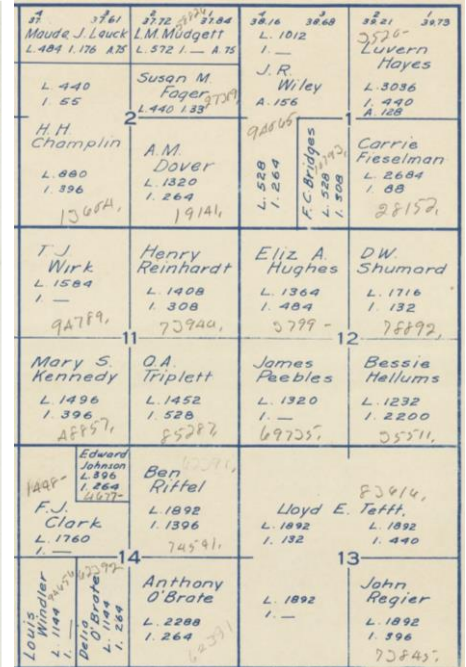 4
37.
3
37.61
Maude J. Lauck
L. 484 I. 176 A.75
2
37.72
1
37.84
L.M. Mudgett
L. 572 I. — A. 75
4
38.16
3
38.68
L. 1012
I. —
J.R.
Wiley
A. 156
2
39.21
1
39.73
Luvern
Hayes
L. 3036
I. 440
A. 128
L. 440
I. 55
Susan M.
Fager
L. 440 I. 33
2
H.H.
Champlin
L. 880
I. 396
A.M.
Dover
L. 1320
I. 264
19141.
1
L. 528
I. 264
F.C. Bridges
L. 528
I. 308
Carrie
Fieselman
L. 2684
I. 88
28152.
T J
Wirk
L. 1584
I. —
94789.
Henry
Reinhardt
L. 1408
I. 308
73944.
Eliz A.
Hughes
L. 1364
I. 484
5799-
D.W.
Shumard
L. 1716
I. 132
78892.
11
12
Mary S.
Kennedy
L. 1496
I. 396
48857.
O.A.
Triplett
L. 1452
I. 528
85287.
James
Peebles
L. 1320
I. —
69735.
Bessie
Hellums
L. 1232
I. 2200
35511.
1448-
Edward
Johnson
L. 396
I. 264
4677-
F.J.
Clark
L. 1760
I. —
Ben
Rittel
L. 1892
I. 1396
74591.
83616.
Lloyd E. Tefft.
L. 1892
I. 132
L. 1892
I. 440
14
13
Louis
Windler
L. 1144
I. —
Delia
O'Brate
L. 1144
I. 264
Anthony
O'Brate
L. 2288
I. 264
62391
L. 1892
I. —
John
Regier
L. 1892
I. 396
73845.